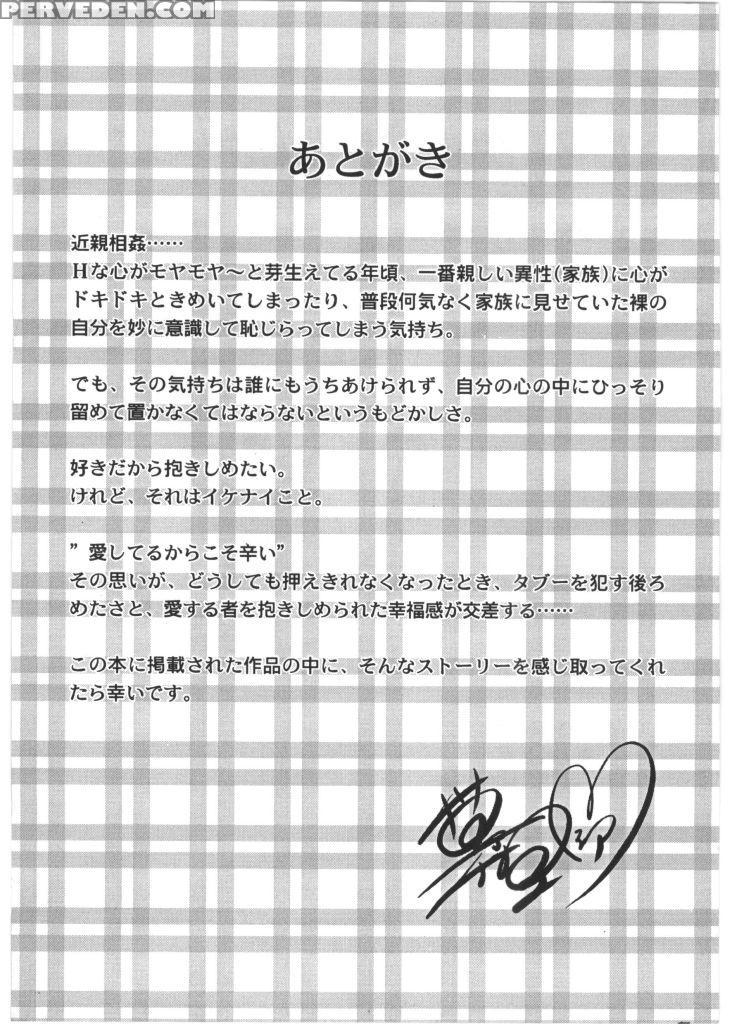 PERVEDEN.COM
あとがき
近親相姦……
Hな心がモヤモヤ～と芽生えてる年頃、一番親しい異性(家族)に心が
ドキドキときめいてしまったり、普段何気なく家族に見せていた裸の
自分を妙に意識して恥じらってしまう気持ち。
でも、その気持ちは誰にもうちあけられず、自分の心の中にひっそり
留めて置かなくてはならないというもどかしさ。
好きだから抱きしめたい。
けれど、それはイケナイこと。
”愛してるからこそ辛い”
その思いが、どうしても押えきれなくなったとき、タブーを犯す後ろ
めたさと、愛する者を抱きしめられた幸福感が交差する……
この本に掲載された作品の中に、そんなストーリーを感じ取ってくれ
たら幸いです。